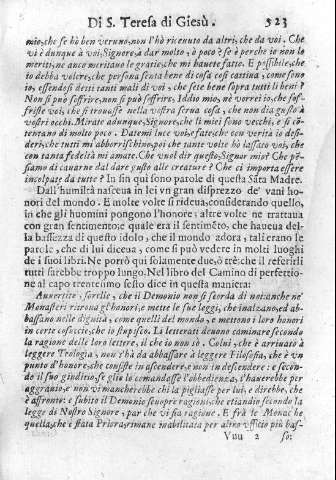 Di S. Teresa di Giesù. 523
mio, che se hò ben veruno, non l'hò riceuuto da altri, che da voi. Che
vi è dunque à voi, Signore, à dar molto, ò poco? se è perche io non lo
meriti, ne anco meritauo le gratie, che mi hauete fatto. E possibile, che
io debba volere, che persona senta bene di cosa così cattiua, come sono
io, essendosi detti tanti mali di voi, che sete bene sopra tutti li beni?
Non si può soffrire, non si può soffrire, Iddio mio, nè vorrei io, che sof-
friste voi, che si trouasse nella vostra serua cosa, che non dia gusto à
vostri occhi. Mirate adunque, Signore, che li miei sono vecchi, e si cō-
tentano di molto poco. Datemi luce voi, e fate, che con verità io desi-
deri, che tutti mi abborrischino, poi che tante volte hò lasciato voi, che
con tanta fedeltà mi amate. Che vuol dir questo, Signor mio? Che pē-
siamo di cauarne dal dare gusto alle creature? Che ci importa essere
incolpate da tutte? In sin qui sono parole di questa Sāta Madre.
Dall'humiltà nasceua in lei vn gran disprezzo de' vani ho-
nori del mondo. E molte volte si rideua, considerando quello,
in che gli huomini pongono l'honore; altre volte ne trattaua
con gran sentimento; e quale era il sentimēto, che haueua del-
la bassezza di questo idolo, che il mondo adora, tali erano le
parole, che di lui diceua, come si può vedere in molti luoghi
de i suoi libri. Ne porrò qui solamente due, ò trè; che il referirli
tutti sarebbe troppo lungo. Nel libro del Camino di perfettio-
ne al capo trentesimo sesto dice in questa maniera:
Auuertite, sorelle, che il Demonio non si scorda di noi: anche ne'
Monasteri ritroua gl'honori, e mette le sue leggi, che inalzano, ed ab-
bassano nelle dignità, come quelli del mondo, e mettono i loro honori
in certe cosuccie, che io stupisco. Li letterati deuono caminare secondo
la ragione delle loro lettere, il che io non sò. Colui, che è arriuato à
leggere Teologia, non s'hà da abbassare à leggere Filosofia, che è vn
punto d'honore, che consiste in ascendere, e non in descendere: e secon-
do il suo giudicio, se gli lo comandasse l'obbedienza, l'hauerebbe per
aggrauio, e non vi mancherebbe chi la pigliasse per lui, e direbbe, che
è affronto: e subito il Demonio scuopre ragioni, che etiandio secondo la
legge di Nostro Signore, par che vi sia ragione. E frà le Monache
quella, che è stata Priora, rimane inabilitata per altro vfficio più bas-
Vuu 2 so: